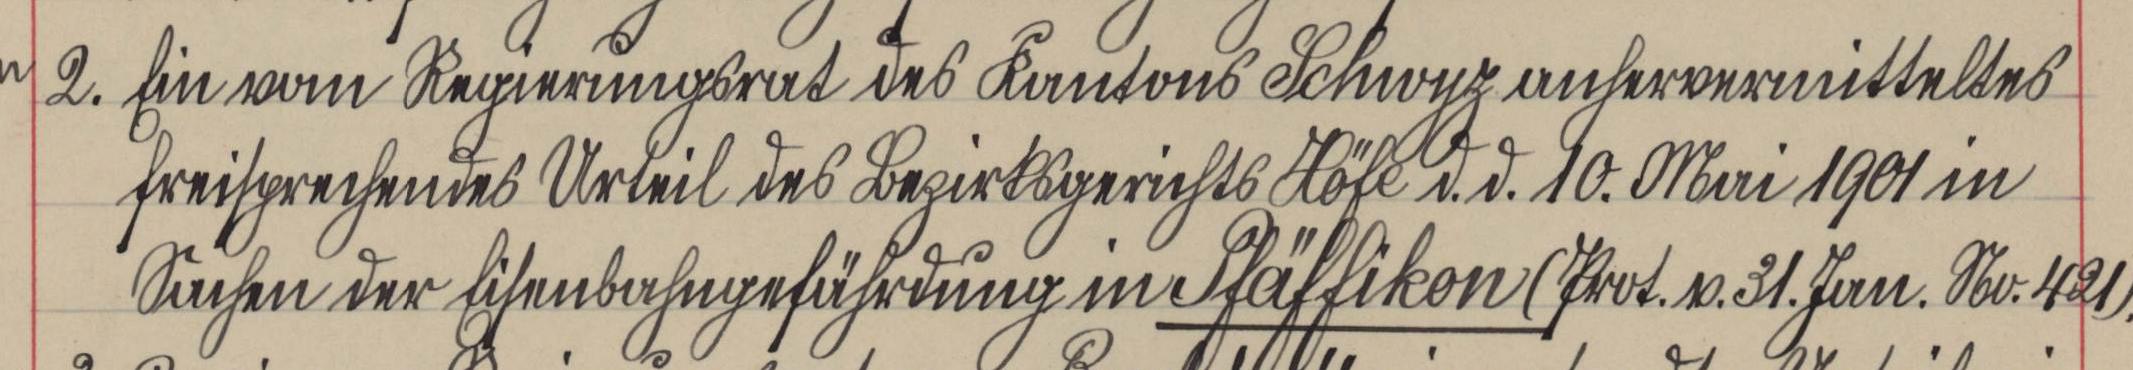 2. Ein vom Regierungsrat des Kantons Schwyz anhervermitteltes
freisprechendes Urteil des Bezirksgerichts Höfe d. d. 10. Mai 1901 in
Sachen der Eisenbahngefährdung in Pfäffikon (Prot. v. 31. Jan. No. 421).